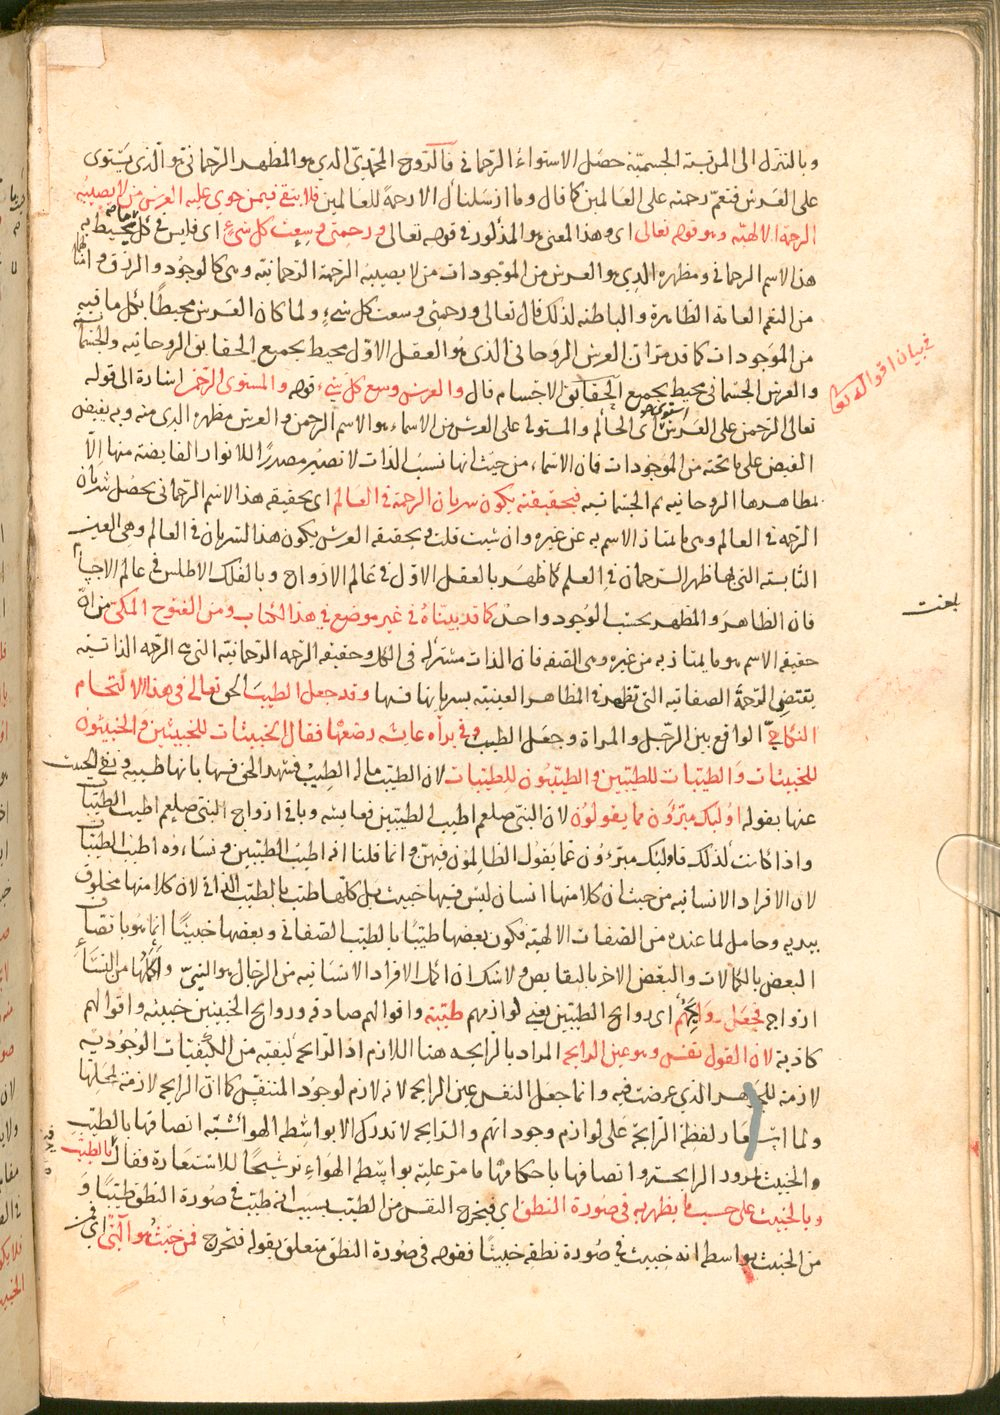 وبالتنزل الى المرتبة الجسمية حصل الاستواء الرحماني فالروح المحمدي الذي هو المظهر الرحماني هو الذي يستوى
على العرش فتعم رحمته على العالمين كما قال وما ارسلناك الا رحمة للعالمين فلا يبقى فيمن حوى عليه العرش من لا يصيبه
الرحمة الالهية وهو قوله تعالى اى وهذا المعنى هو المذكور في قوله تعالى ورحمتي وسعت كل شيء اى فليس في كل ما يحيط به
هذا الاسم الرحماني ومظهره الذي هو العرش من الموجودات من لا يصيبه الرحمة الرحمانية وهى كالوجود والرزق وامثالهما
من النعم العامة الظاهرة والباطنة لذلك قال تعالى ورحمتى وسعت كل شيء ولما كان العرش محيطا بكل ما فيه
من الموجودات كما قد مر ان العرش الروحاني الذى هو العقل الاول محيط بجميع الحقايق الروحانيه والجسمانية
والعرش الجسمانى محيط بجميع الحقايق الاجسام قال والعرش وسع كل شيء قوله والمستوى الرحمن اشارة الى قوله
تعالى الرحمن على العرش استوى اى الحاكم والمستولى على العرش من الاسماء هو الاسم الرحمن والعرش مظهره الذى منه وبه يفيض
الفيض على ما تحته من الموجودات فان الاسماء من حيث انها نسب الذات لا تصير مصدرا للانوار الفايضة منها الا
بمظاهرها الروحانيه ثم الجسمانيه فبحقيقته يكون سريان الرحمة في العالم اى بحقيقه هذا الاسم الرحمانى يحصل سريان
الرحمه في العالم وهى ما يمتاز الاسم به عن غيره وان شئت قلت وبحقيقه العرش يكون هذا السريان في العالم وهى العين
الثابته التى بها ظهر الرحمان في العلم كما ظهر بالعقل الاول في عالم الارواح وبالفلك الاطلس في عالم الاجسام
فان الظاهر والمظهر بحسب الوجود واحد كما قد بيناه في غير موضع في هذا الكتاب ومن الفتوح المكى من ان
حقيقه الاسم هو ما يمتاز به من غيره وهى الصفه فان الذات مشتركه في الكل وحقيقه الرحمه الرحمانيه التى هى الرحمه الذاتية
يقتضى الرحمة الصفاتيه التى تظهر في المظاهر العينية بسريانها فيها وقد جعل الطيب الحق تعالى في هذا الالتحام
النكاحي الواقع بين الرجل والمراة وجعل الطيب في براه عايشه رضعنها فقال الخبيثات للخبيثين والخبيثون
للخبيثات والطيبات للطيبين والطيبون للطيبات لان الطيب ماله الطيب فشهد الحق فيها بانها طيبه ونفى الخبث
عنها بقوله اوليك مبرؤن مما يقولون لان النبى صلعم اطيب الطيبين فعايشه وباقى ازواج النبى صلعم اطيب الطيبات
واذا كانت كذلك فاوليك مبرءون عما يقول الظالمون فيهن وانما قلنا انه اطيب الطيبين ونساءوه اطيب الطيبات
لان الافراد الانسانيه من حيث ان كلا منها انسان ليس فيها خبيث بل كلها طيب بالطيب الذاتى لان كلا منها مخلوق
بيديه وحامل لما عنده من الصفات الالهية فكون بعضها طيبا بالطيب الصفاتى وبعضها خبيثا انما هو باتصاف
البعض بالكمالات والبعض الاخر بالنقايص ولا شك ان اكمل الافراد الانسانيه من الرجال هو النبى واكملها من النساء
ازواجه فجعل روايحهم اى روايح الطيبين يعنى لوازمهم طيبة واقوالهم صادقه وروايح الخبيثين خبيثه واقوالهم
كاذبة لان القول نفس وهو عين الرايحه المراد بالرايحه هنا اللازم اذ الرايحه كيفيه من الكيفيات الوجودية
لازمة للجوهر الذي عرضت فيه وانما جعل النفس عين الرايحه لانه لازم لوجود المتنفس كما ان الرايحه لازمة لمحلها
ولما استعار لفظة الرايحة على لوازم وجوداتهم والرايحه لا تدرك الا بواسطه الهوا شبه اتصافها بالطيب
والخبيث بمرود الرايحة واتصافها باحكام ما مر عليه بواسطه الهواء ترشيحا للاستعارة فقال بالطيب
وبالخبيث على حسب ما يظهر به في صورة النطق اي فيخرج النفس من الطيب بسبب انه طيب في صورة النطق طيبا و
من الخبيث بواسطه انه خبيث في صورة نطقه خبيثا فقوله في صورة النطق متعلق بقوله فتخرج فمن حيث هو الهى اى فمن
في بيان اقوال
بلغت